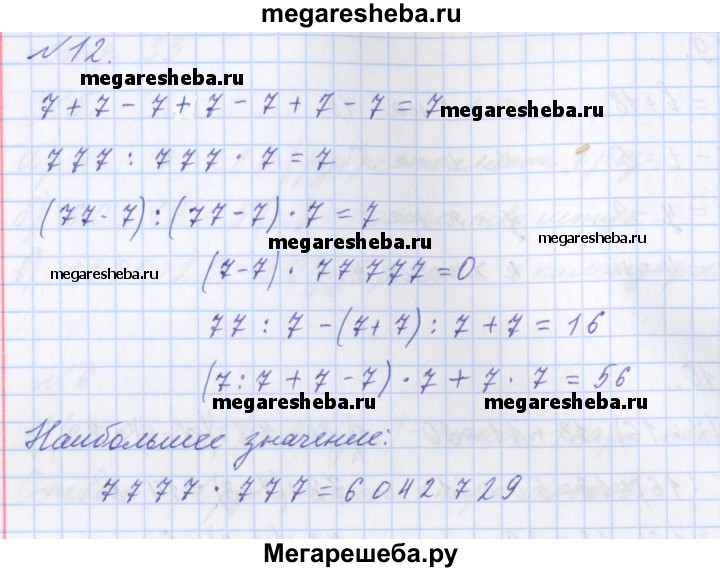 megaresheba.ru
№12.
megaresheba.ru
7 + 7 - 7 + 7 - 7 + 7 - 7 = 7
megaresheba.ru
777 : 777 · 7 = 7
(77 - 7) : (77 - 7) · 7 = 7
megaresheba.ru
megaresheba.ru
megaresheba.ru
(7-7) · 77777 = 0
77 : 7 - (7+7) : 7 + 7 = 16
(7 : 7 + 7 - 7) · 7 + 7 · 7 = 56
megaresheba.ru
megaresheba.ru
Наибольшее значение:
7777 · 777 = 6042729
Мегарешеба.ру